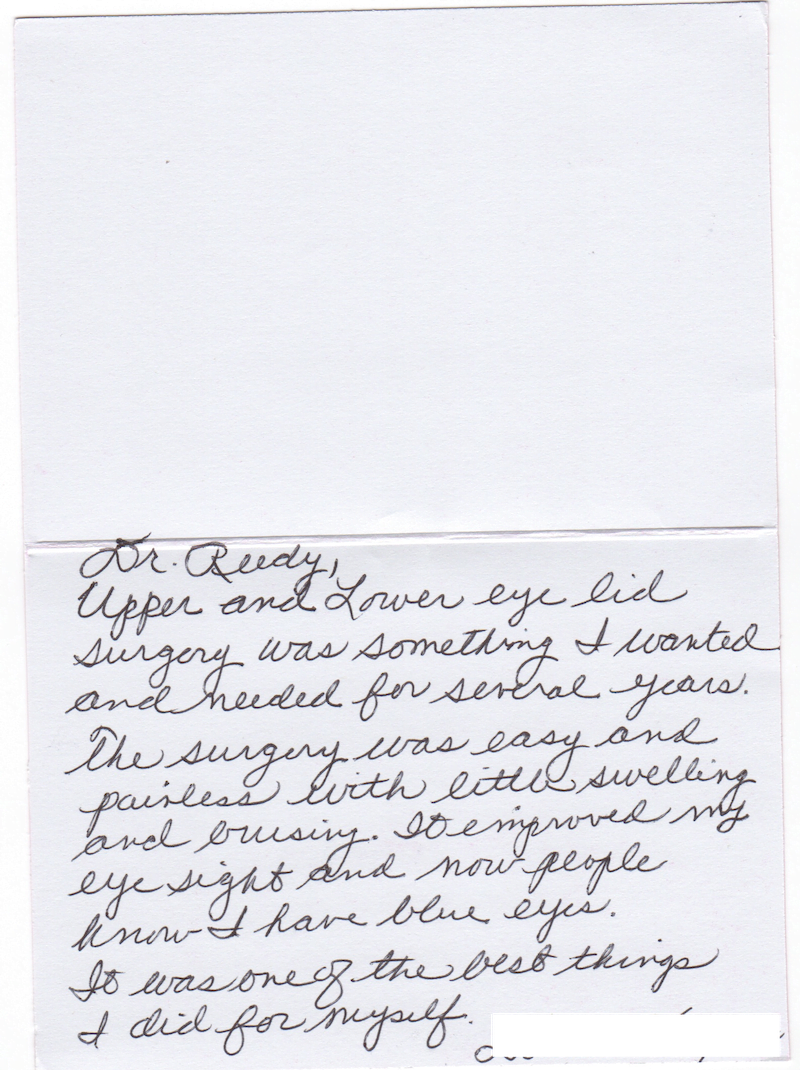 Dr. Reedy,
Upper and Lower eye lid
surgery was something I wanted
and needed for several years.
The surgery was easy and
painless with little swelling
and bruising. It improved my
eye sight and now people
know I have blue eyes.
It was one of the best things
I did for myself.